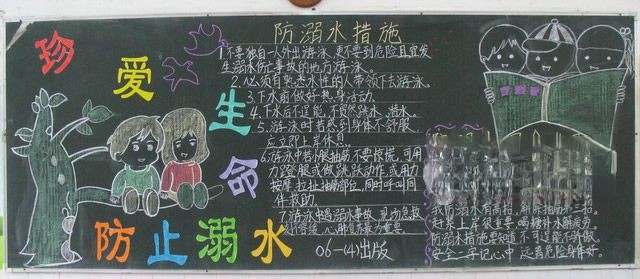 珍爱生命
防止溺水
防溺水措施
1.不要独自一人外出游泳,更不要到危险且宜发
生溺水伤亡事故的地方游泳。
2.必须由熟悉水性的人带领下去游泳。
3.下水前做好热身活动。
4.下水后不逞能,不贸然跳水、潜水。
5.游泳时若感到身体不舒服,
应立即上岸休息。
6.游泳中若小腿抽筋不要惊慌,可用
力蹬腿或做跳跃动作,或用力
按摩、拉扯抽筋部位,同时呼叫同
伴救助。
7.游泳中遇溺水事故,现场急救
刻不容缓,心肺复苏最为重要。
06-(4)出版
我防溺水有高招,
赶紧上岸很重要,喝糖补水解疲劳
防溺水措施要知道,不可逞能不骄傲
安全一字记心中,远离危险身体好